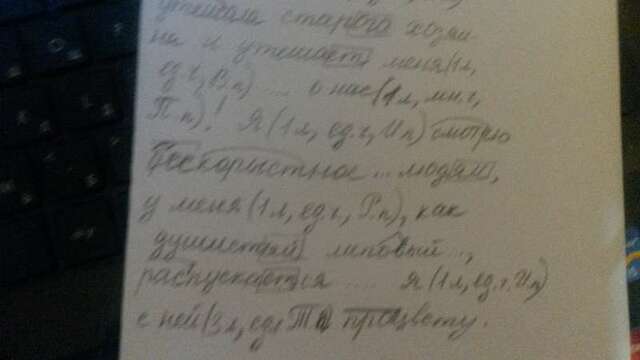 утешала старого хозяи
на и утешать меня (1 л,
ед.ч, В.п) ... о нас (1 л, мн.ч,
П.п)! Я (1 л, ед.ч, И.п) смотрю
бескорыстное ... людям,
у меня (1 л, ед.ч, Р.п), как
душистый липовый ...,
распускается ... я (1 л, ед.ч, И.п)
с ней (3 л, ед.ч Тп) процвету.